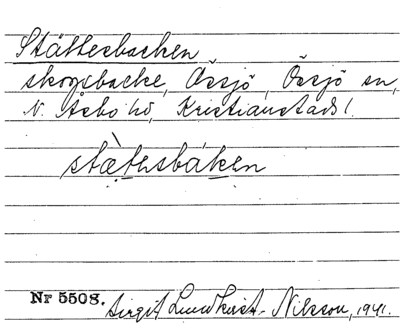 Stättesbacken
skogsbacke, Össjö, Össjö sn,
N. Åsbo hd, Kristianstads l.
stæ̀tesbáken
Nr 5508. Birgit Lundkvist-Nilsson, 1941.